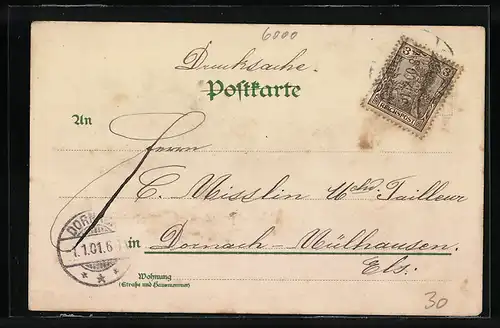 6000
Drucksache.
Postkarte
3 3
REICHSPOST
An
Herrn
C. Nisslin Mchd. Tailleur
DORN
1.1.01.6
in Dornach-Mülhausen.
Els.
Wohnung
(Straße und Hausnummer)
30